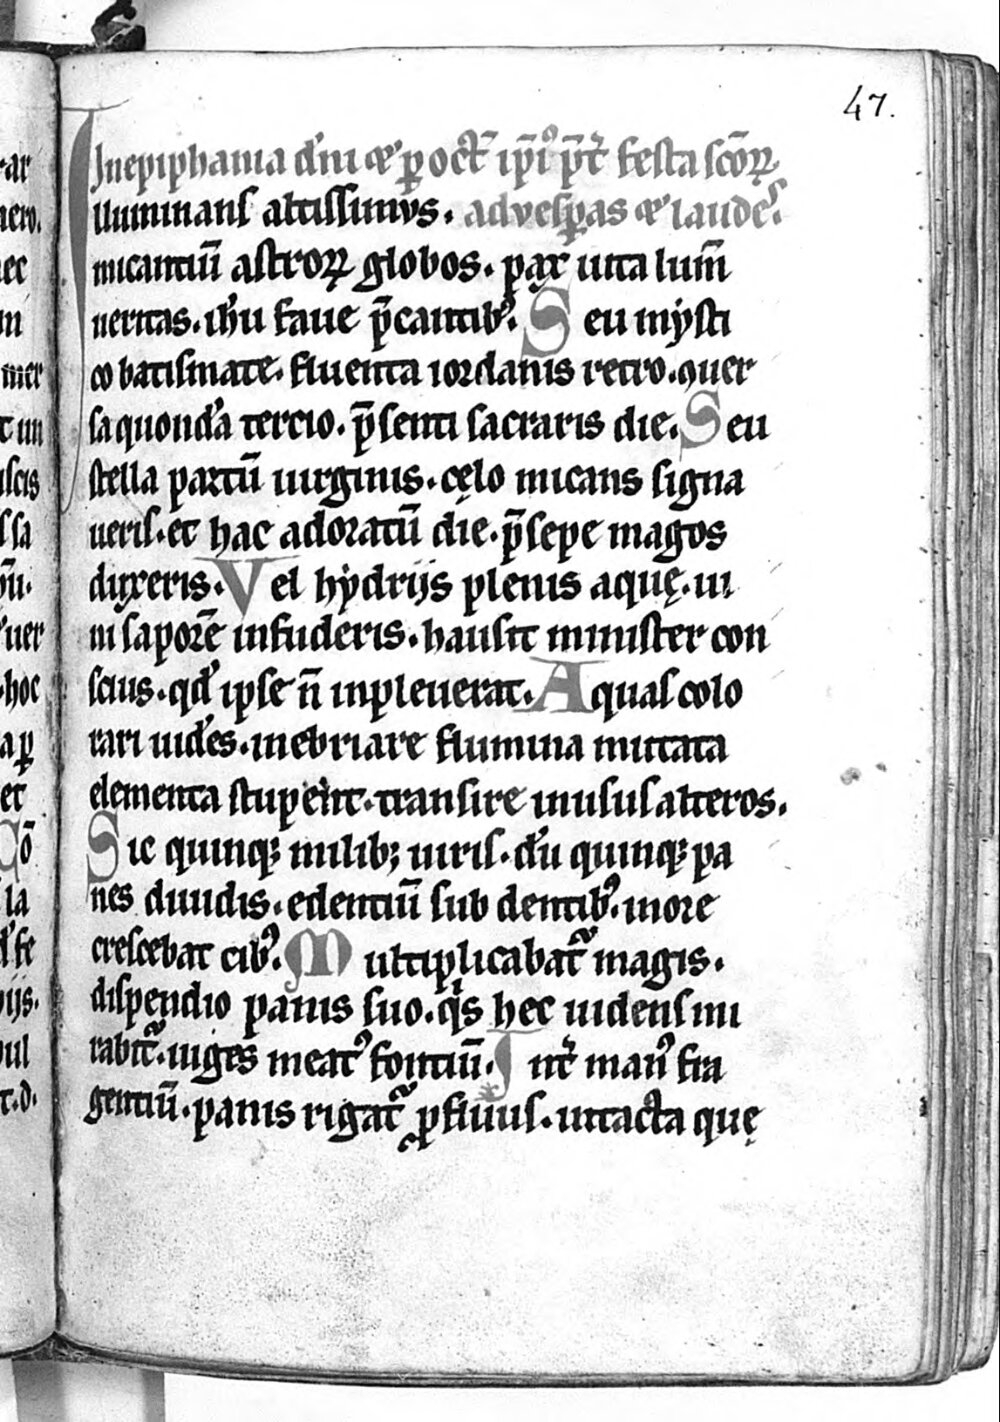 47.
In epiphania dn̄i ⁊ ꝑ oct̄ ip̄iꝰ p̄t̄ festa sc̄oꝝ
Illuminans altissimus. ad vesꝑas ⁊ laudes.
micantiū astroꝝ globos. pax uita lum̄
ueritas. ih̄u faue p̄cantibꝰ. Seu mẏsti
co batismate. fluenta iordanis retro. quer
sa quond̄a tercio. p̄senti sacraris die. Seu
stella partū uirginis. cęlo micans signa
ueris. et hac adoratū die. p̄sepe magos
duxeris. Vel hẏdrijs plenis aquę. ui
ni saporē infuderis. hausit minister con
scius. qd̄ ipse n̄ inpleuerat. Aquas colo
rari uid̄es. inebriare flumina mutata
elementa stupeīt. transire in usus alteros.
Sic quinqꝫ milibꝫ uiris. dū quinqꝫ pa
nes diuidis. edentiū sub dentibꝰ. in ore
crescebat cibꝰ. Multiplicabat᷑ magis.
dispendio panis suo. q̇s hec uidens mi
rabit᷑. iuges meatꝰ fontiū. Int̄ manꝰ fra
gentiū. panis rigat᷑ ꝓfluus. intacta quę